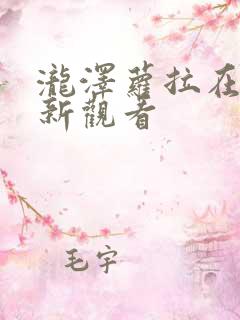 瀧澤蘿拉在
新觀看
毛宇